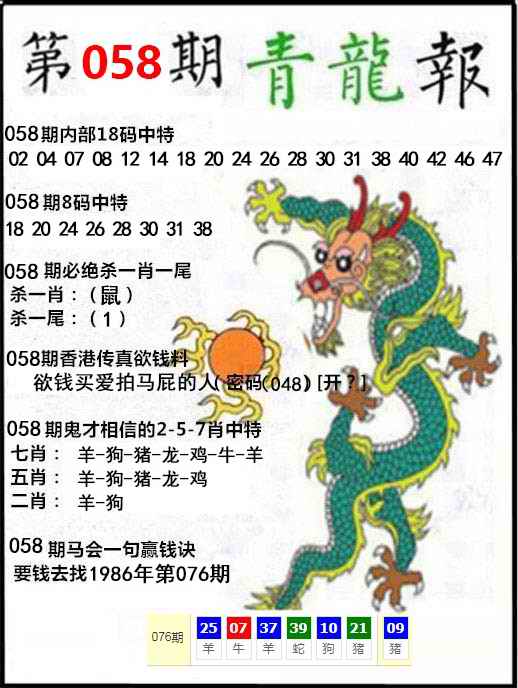 第058期青龍報
058期内部18码中特
02 04 07 08 12 14 18 20 24 26 28 30 31 38 40 42 46 47
058期8码中特
18 20 24 26 28 30 31 38
058期必绝杀一肖一尾
杀一肖：（鼠）
杀一尾：（1）
058期香港传真欲钱料
欲钱买爱拍马屁的人(密码(048)[开?]
058期鬼才相信的2-5-7肖中特
七肖：羊-狗-猪-龙-鸡-牛-羊
五肖：羊-狗-猪-龙-鸡
二肖：羊-狗
058期马会一句赢钱诀
要钱去找1986年第076期
076期 25 07 37 39 10 21 09
羊 牛 羊 蛇 狗 猪 猪